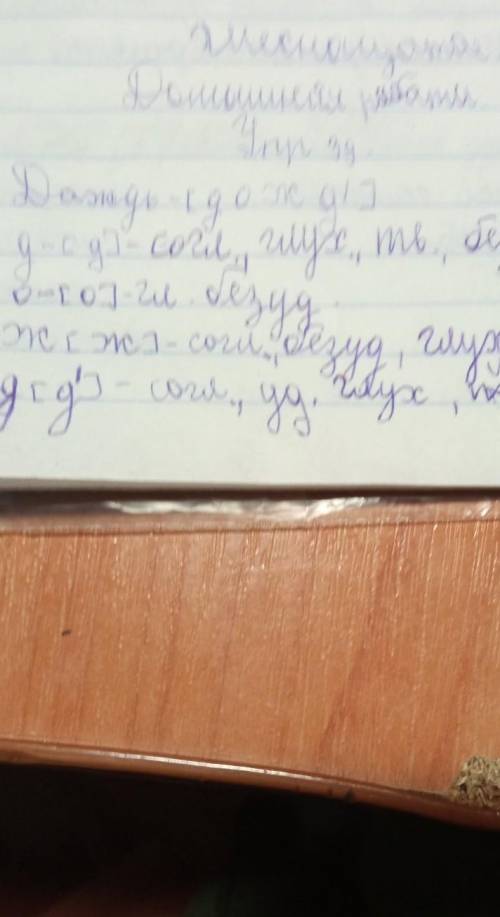 Домашняя работа
Упр
Дождь-[дожд']
д-[д]-согл., глух., тв., бе
о-[о]-гл. безуд.
ж[ж]-согл., безуд, глух
д[д']-согл., уд. глух,